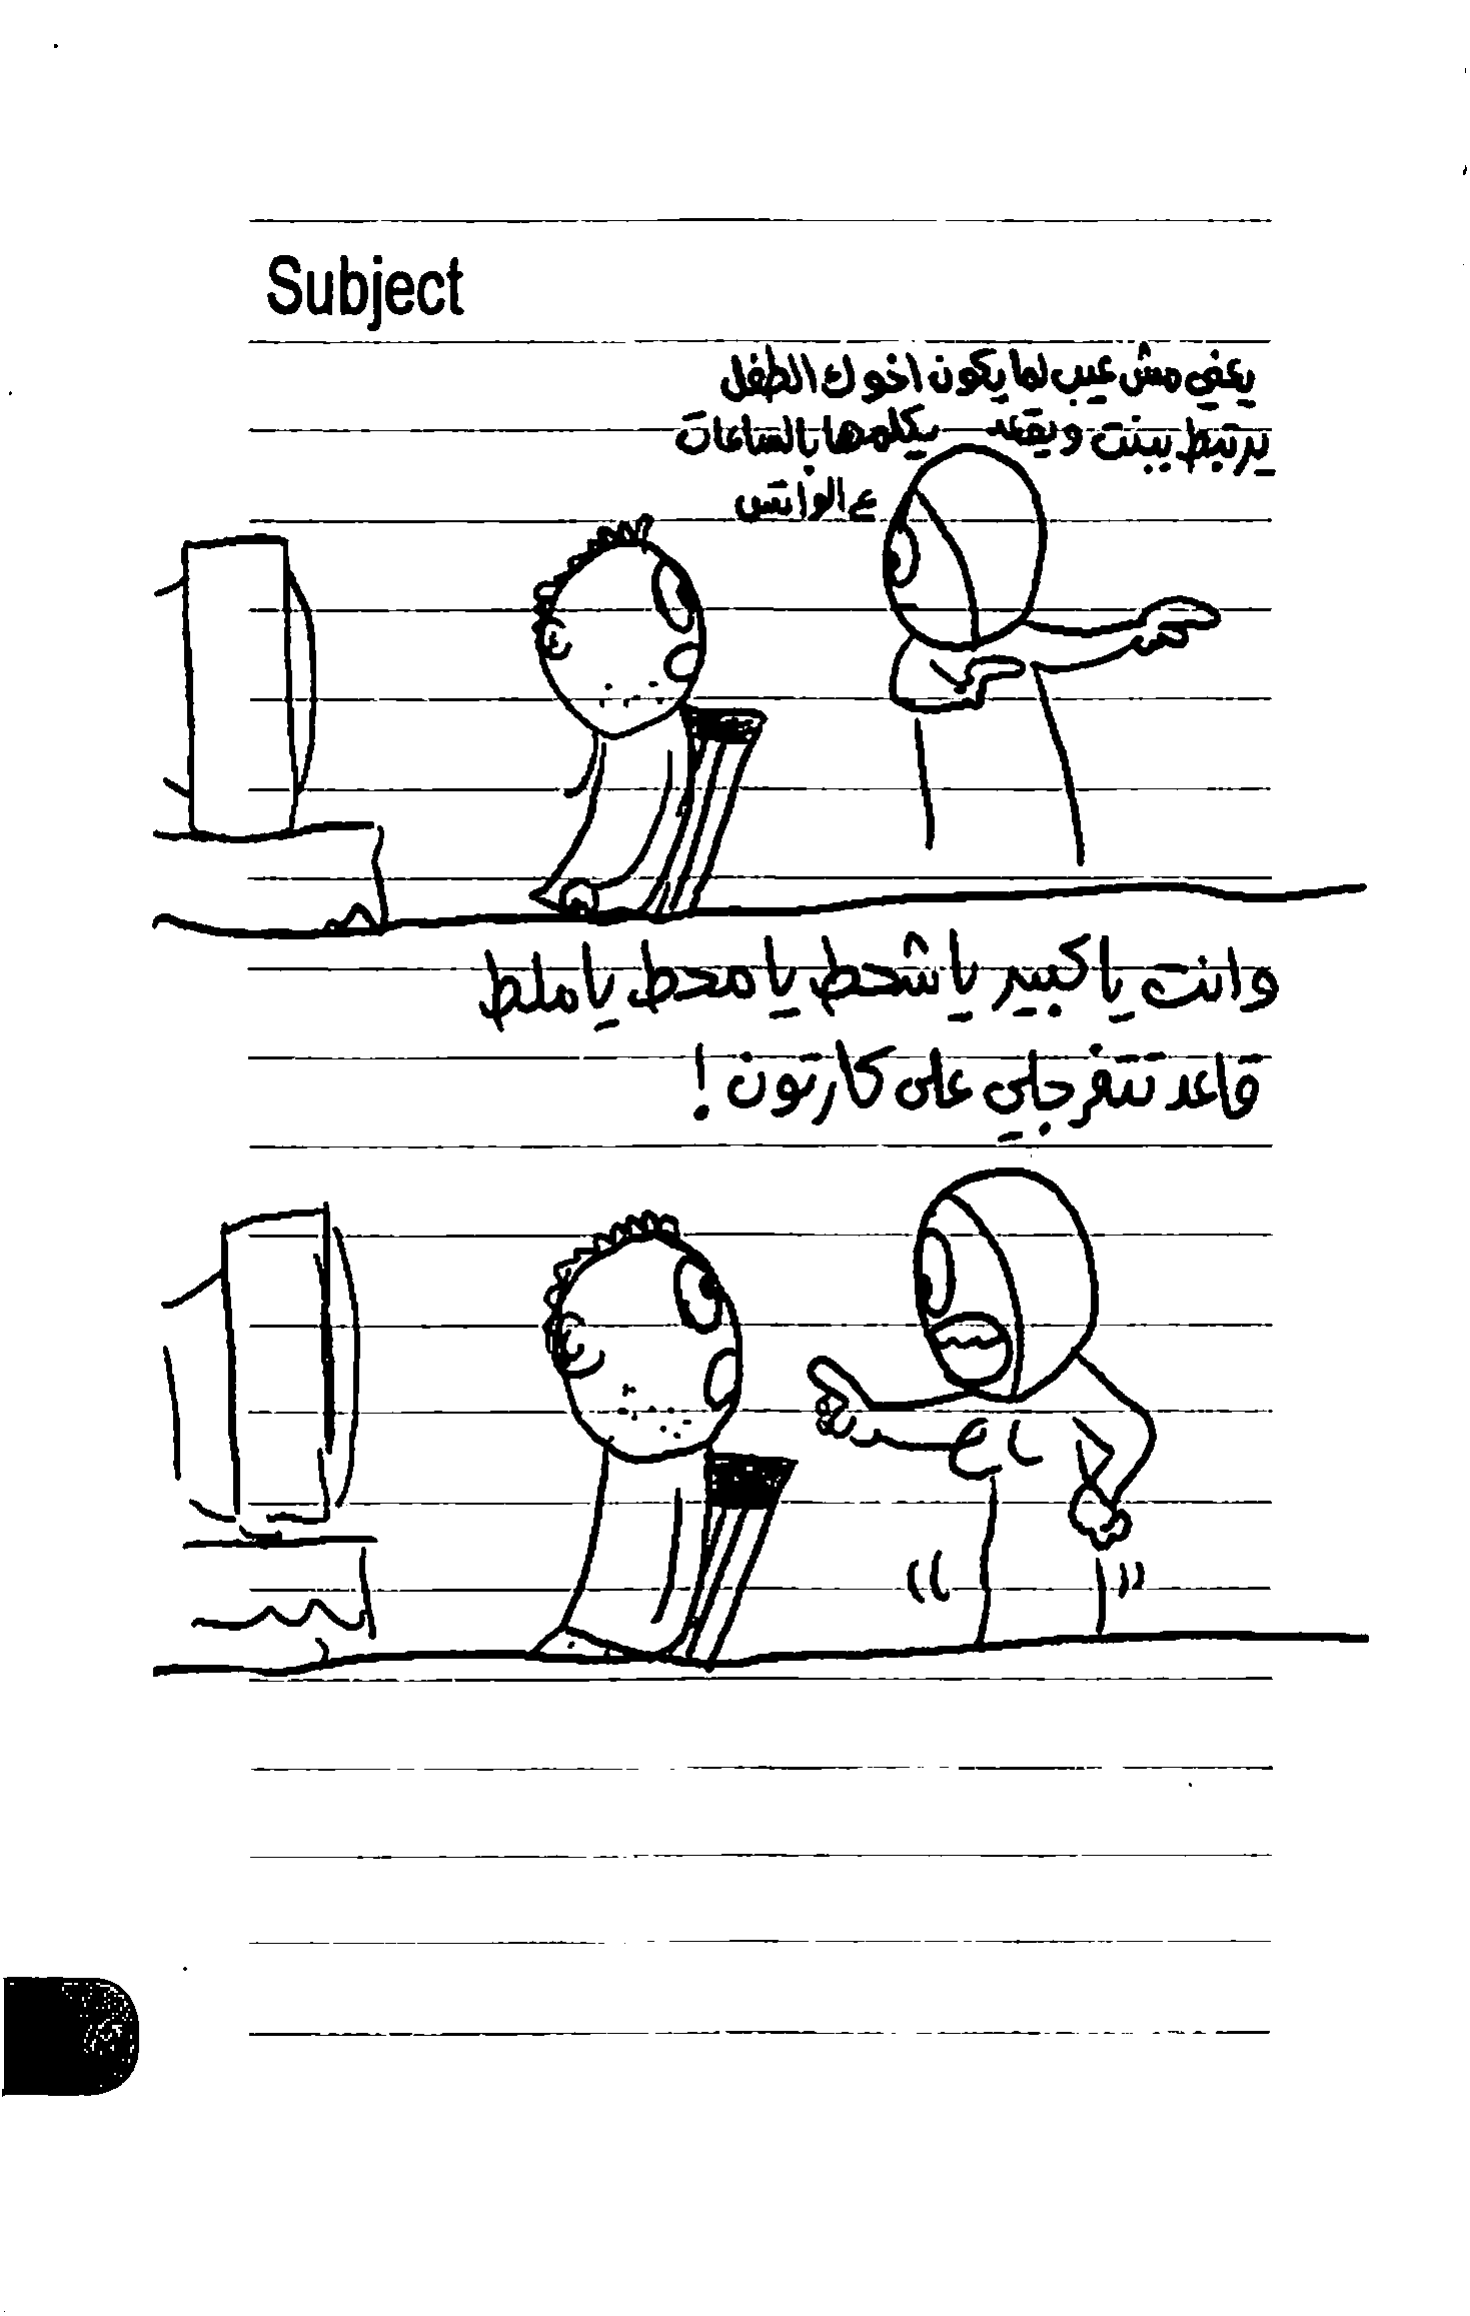 Subject
يعني مش عيب لما يكون اخوك الطفل
يرتبط ببنت ويقعد يكلمها بالساعات
ع الواتس
وانت يا كبير يا شحط يا محط يا ملط
قاعد تتفرجلي على كارتون !